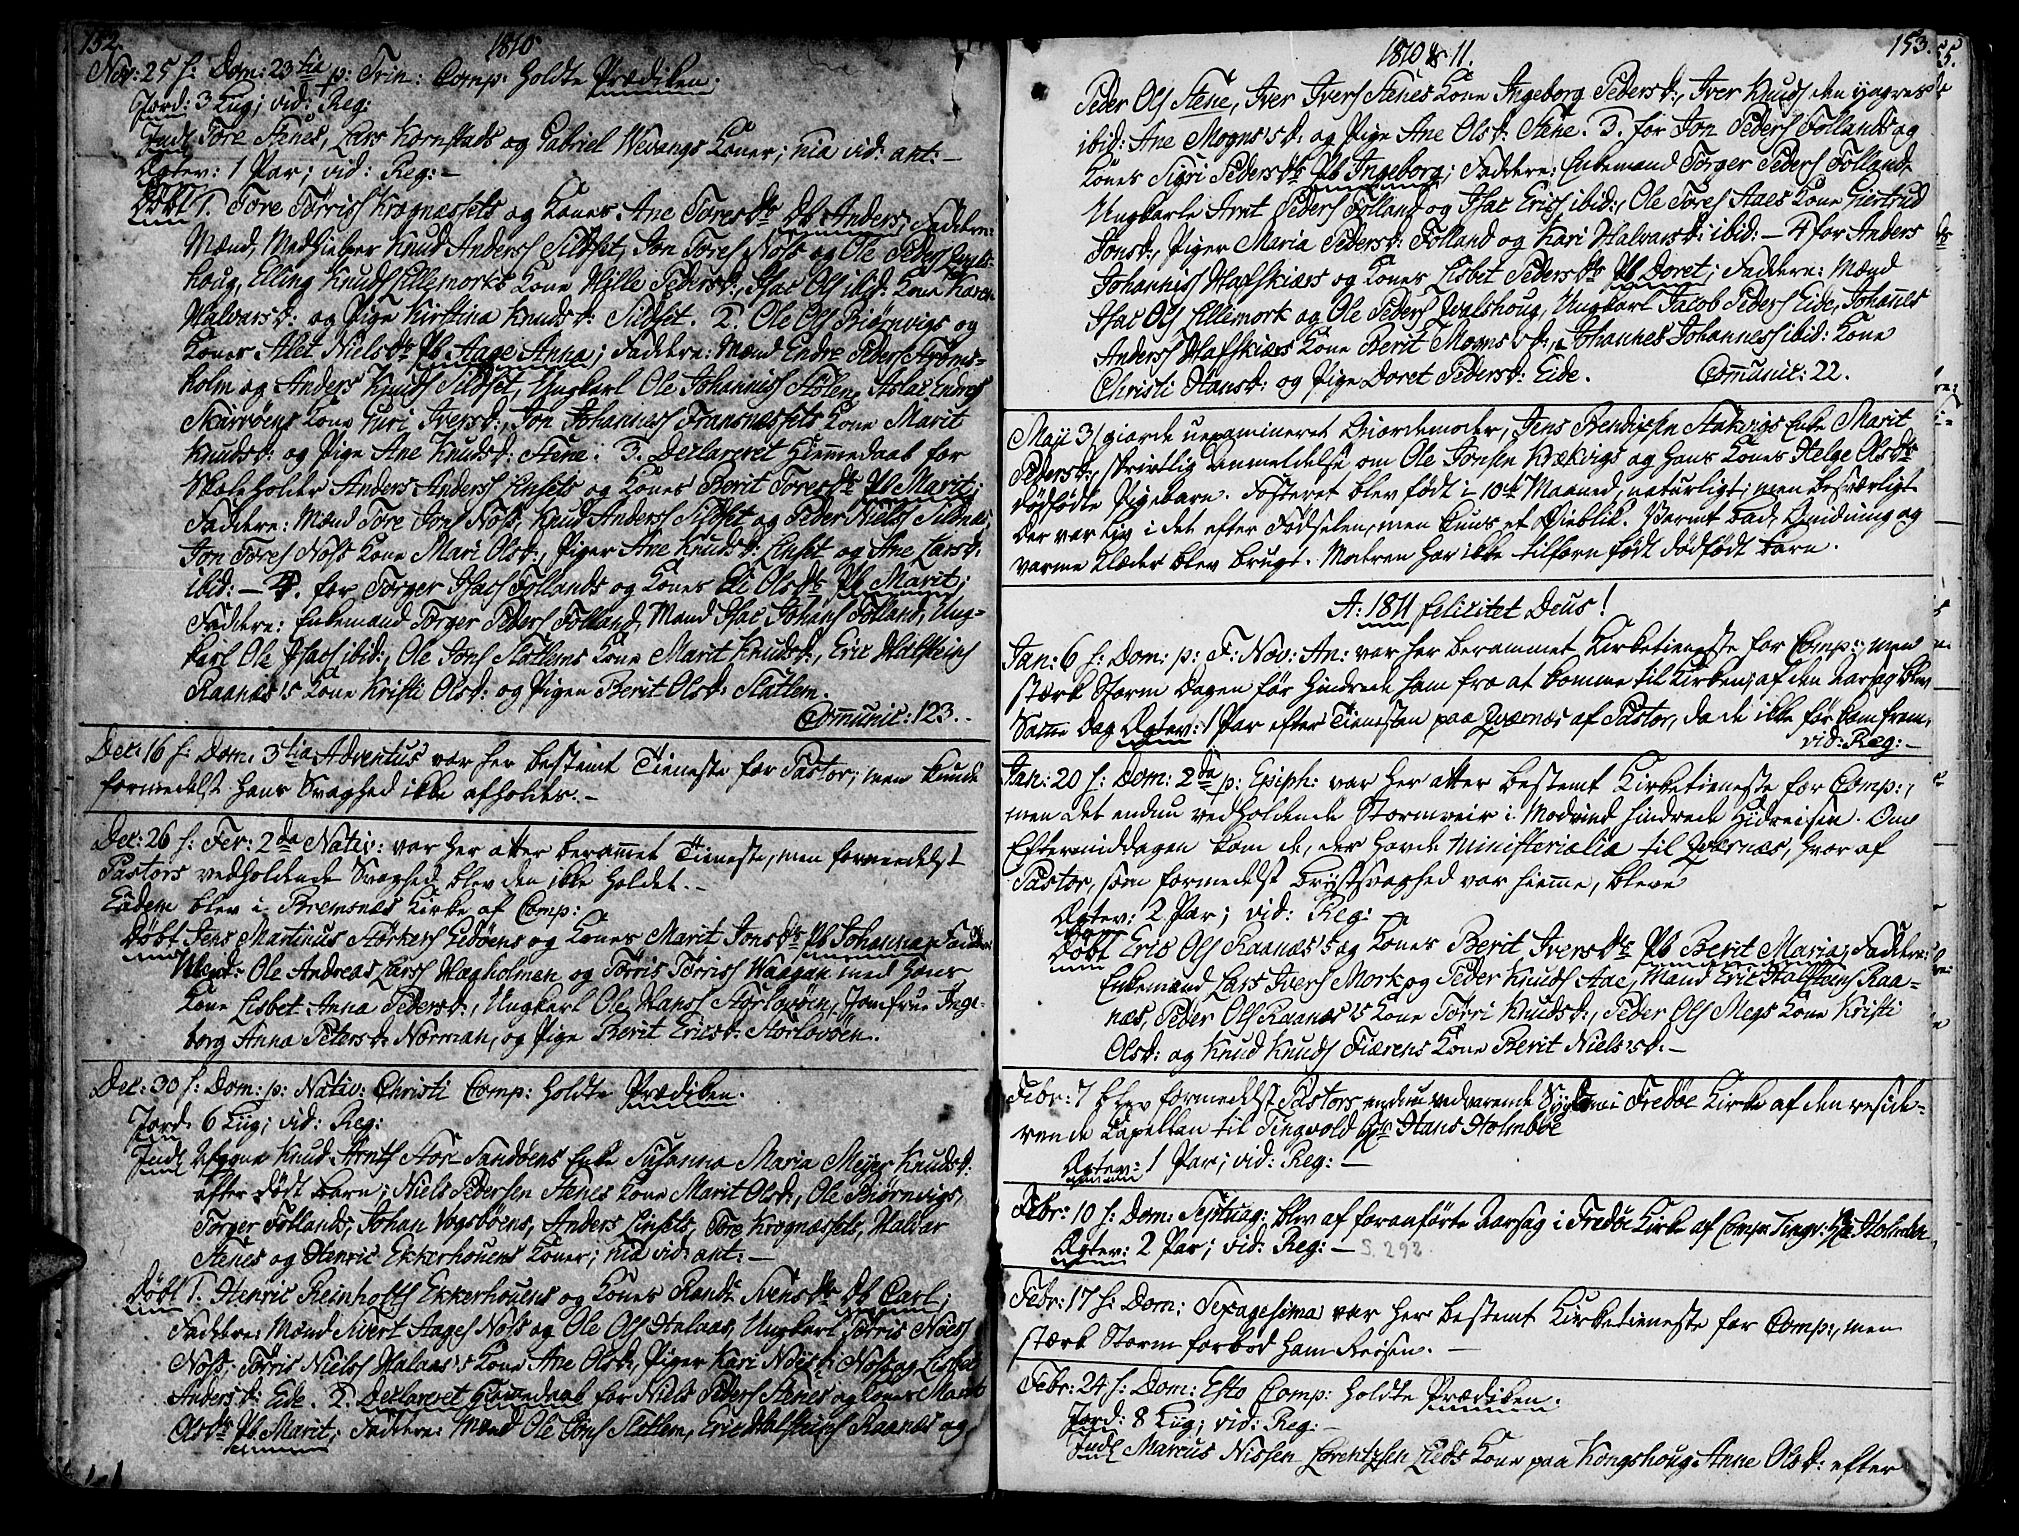 152.
1810
Nov: 25 f: Dom: 23tia p: Trin: Comp: holdte Prædiken.
Jord: 3 Liig; vid: Reg:
Indl Tore Stenes, Lars Kornstads og Gabriel Wevangs Koner; nia vid: ant: -
Ægtev: 1 Par; vid: Reg: -
Døbt 1. Tore Tørriss Krognæssets og Kones Ane Toresdr Db Anders; Faddere:
Mænd, Medhielper Knud Anderss Sildset, Jon Toress Noss og Ole Peders
houg, Elling Knuds Lillemorks Kone Hille Pedersd:, Isac Ols ibid: Kone Karen
Halvarsd: og Pige Kirstina Knudsd: Sildset. 2. Ole Ols Biørnvigs og
Kones Alet Nielsdr Pb Aage Anna; Faddere: Mænd Endre Peders Strøms-
holm og Anders Knuds Sildset, Ungkarl Ole Johanniss Stølen, Aslac Endres
Skarvøens Kone Guri Iversd:, Jon Johanness Fransnæssets Kone Marit
Knudsd: og Pige Ane Knudsd: Stene. 3. Declareret Hiemmedaab for
Skoleholder Anders Anderss Linsets og Kones Berit Toresdr Pb Marit;
Faddere: Mænd Tore Jons Noss, Knud Anderss Sildset og Peder Niels Sildnæs,
Jon Tores Noss Kone Mari Olsd:, Piger Ane Knudsd: Linset og Ane Larsd:
ibid: - 4. for Torger Isacs Follands og Kones Eli Olsdr Pb Marit;
Faddere: Enkemand Torger Peders Folland, Mand Isac Johans Folland, Ung-
karl Ole Isacs ibid:, Ole Jons Slatlems Kone Marit Knudsd:, Eric Halsteins
Raanæs's Kone Kristi Olsd: og Pigen Berit Olsd: Slatlem.
Comunic: 123. -
Dec: 16 f: Dom: 3tia Adventus var her bestemt Tieneste for Pastor; men kunde
formedelst hans Svaghed ikke afholdes. -
Dec: 26 f: Fer: 2da Nativ: var her atter berammet Tieneste, men formedelst
Pastors vedholdende Svaghed blev den ikke holdet. -
Eadem blev i Bremsnæs Kirke af Comp:
Døbt Jens Martinus Størkers Ledøens og Kones Marit Jonsdr Pb Johanna; Faddere:
Mænd: Ole Andreas Larss Hagholmen og Tørris Tørriss Waagan med hans
Kone Lisbet Anna Pedersd:, Ungkarl Ole Hans Storlovøen, Jomfrue Inge-
borg Anna Petersd: Norman, og Pige Berit Ericsd: Storlovøen.
Dec: 30 f: Dom: p: Nativ: Christi Comp: holdte Prædiken.
Jord: 6 Liig; vid: Reg:
Indl Afgangne Knud Arnts Stor-Sandøens Enke Susanna Maria Meyer Knudsd:
efter dødt Barn; Niels Pedersen Stenes Kone Marit Olsd:, Ole Biørnvigs,
Torger Follands, Johan Vogsbøens, Anders Linsets, Tore Krognæssets, Halvar
Stenes og Henric Ekkerhouens Koner; nia vid: ant: -
Døbt 1. Henric Reinholts Ekkerhouens og Kones Randi Svensdr Db Carl;
Faddere: Mænd Sivert Aages Noss og Ole Ols Halaas, Ungkarl Tørris Niels
Noss, Tørris Niels Halaas's Kone Ane Olsd:, Piger Kari Nilsd: Noss og Lisbet
Andersd: Eide. 2. Declareret Hiemmedaab for Niels Peders Stenes og Kones Marit
Olsdr Pb Marit; Faddere: Mænd Ole Jons Slatlem, Eric Halsteins Raanæs og
1810 & 11.
153.
Peder Ols Stene, Iver Ivers Stenes Kone Ingeborg Pedersd:, Iver Knuds den yngres
ibid: Ane Mogns'sd: og Pige Ane Olsd: Stene. 3. for Jon Peders Follands og
Kones Sigri Pedersdr Pb Ingeborg; Faddere: Enkemand Torger Peders Folland,
Ungkarle Arnt Peders Folland og Isac Erics ibid:, Ole Tores Aaes Kone Giertrud
Jonsd:, Piger Maria Pedersd: Folland og Kari Halvarsd: ibid: - 4 for Anders
Johanniss Hafskiærs og Kones Lisbet Pedersdr Pb Doret; Faddere: Mænd
Isac Ols Lillemork og Ole Peders houg, Ungkarl Jacob Peders Eide, Johannes
Anderss Hafskiærs Kone Berit Mogns'sd:, Johannes Johanness ibid: Kone
Christi Hansd: og Pige Doret Pedersd: Eide.
Comunic: 22.
Maji 31 giorde uexamineret Giordemoder, Jens Bendixsen Stakvigs Enke Marit
Pedersd:, skrivtlig Anmeldelse om Ole Jonsen Krækvigs og hans Kones Helge Olsdrs
dødfødte Pigebarn. Fosteret blev født i 10de Maaned, naturligt; men besværligt.
Der var Liv i det efter Fødselen, men kuns et Øieblik. Varmt Bad, Gnidning og
varme Klæder blev brugt. Modren har ikke tilforn født dødfødt Barn.
A: 1811 felicitet Deus!
Jan: 6 f: Dom: p: F: Nov: An: var her berammet Kirketieneste for Comp:, men
stærk Storm Dagen før hindrede ham fra at komme til Kirken; af den Aarsag blev
Samme Dag Ægtev: 1 Par efter Tienesten paa Qværnæs af Pastor, da de ikke før kom frem,
vid: Reg: -
Jan: 20 f: Dom: 2da p: Epiph: var her atter bestemt Kirketieneste for Comp:,
men det endnu vedholdende Stormveir i Modvind hindrede Hidreisen. Om
Eftermiddagen kom de, der havde Ministerialia til Qværnæs, hvor af
Pastor, som formedelst Brystsvaghed var hiemme, bleve
Ægtev: 2 Par; vid: Reg:
Døbt Eric Ols Raanæs's og Kones Berit Iversdr Pb Berit Maria; Faddere:
Enkemænd Lars Ivers Mork og Peder Knuds Aae, Mand Eric Halsteins Raa-
næs, Peder Ols Raanæs's Kone Torri Knudsd:, Peder Ols Megs Kone Kristi
Olsd: og Knud Knuds Fiærens Kone Berit Niels'sd: -
Febr: 7 blev formedelst Pastors endnu vedvarende Sygdom i Fredøe Kirke af den reside-
rende Capellan til Tingvold Hr Hans Holmboe
Ægtev: 1 Par; vid: Reg: -
Febr: 10 f: Dom: Septuag: blev af foranførte Aarsag i Fredøe Kirke af Comp: Tingv: Hr Holmboe
Ægtev: 2 Par; vid: Reg: - S. 298
Febr: 17 f: Dom: Sexagesima var her bestemt Kirketieneste for Comp:, men
stærk Storm forbød ham Reisen. -
Febr: 24 f: Dom: Esto Comp: holdte Prædiken.
Jord: 8 Liig; vid: Reg: -
Indl Marcus Nissen Lorentzsen Lieds Kone paa Kongshoug Anne Olsd: efter